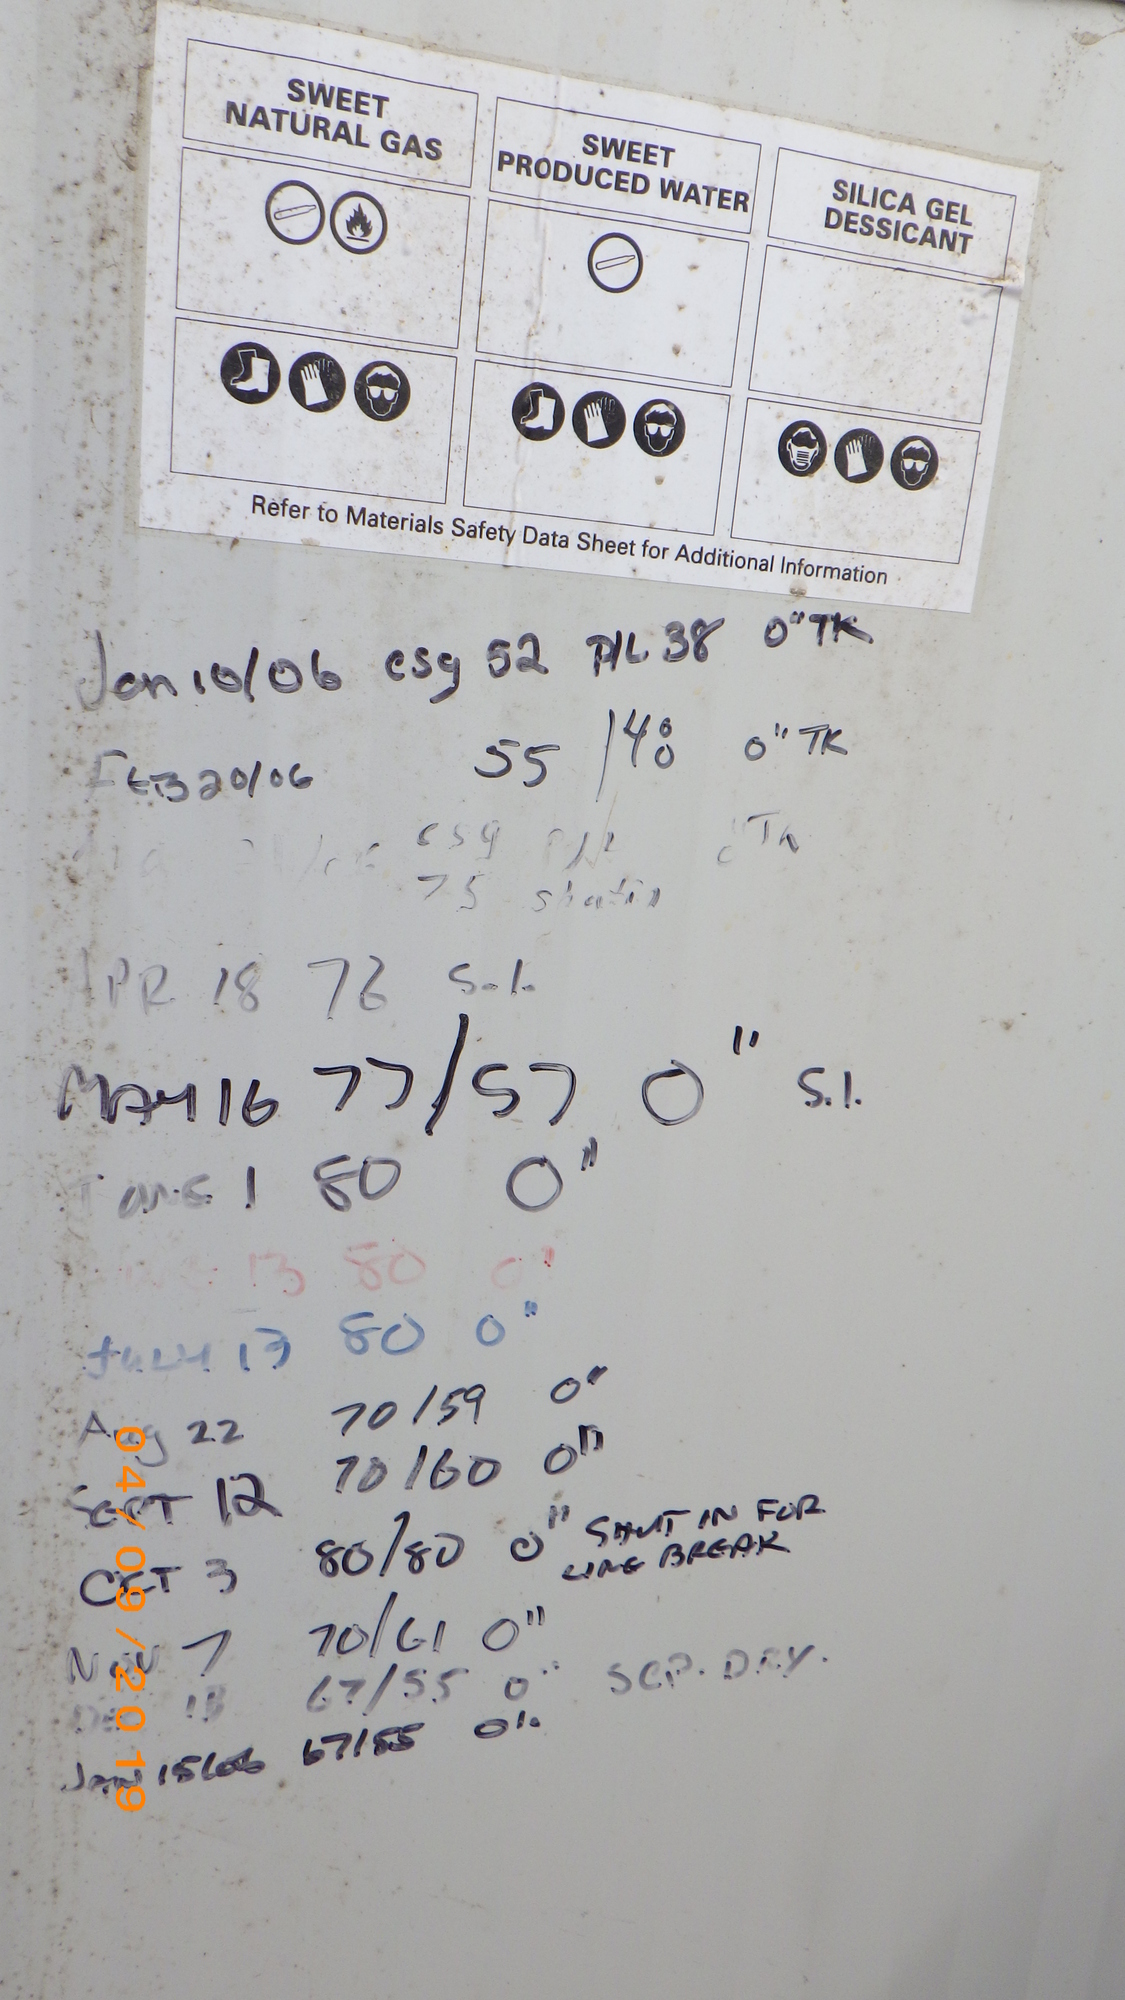 SWEET
NATURAL GAS
SWEET
PRODUCED WATER
SILICA GEL
DESSICANT
Refer to Materials Safety Data Sheet for Additional Information
Jan 10/06 csg 52 P/L 38 0" TK
FEB 20/06 55 / 40 0" TK
csg P/L 0" TK
75 shutin
APR 18 76 S.I.
MAY 16 77/57 0" S.I.
June 1 80 0"
13 80 0"
JULY 13 80 0"
Aug 22 70/59 0"
SEPT 12 70/60 0"
OCT 3 80/80 0" SHUT IN FOR
LINE BREAK
NOV 7 70/61 0"
DEC 13 67/55 0" SEP. DRY.
JAN 15 67/55 0"
04/09/2019